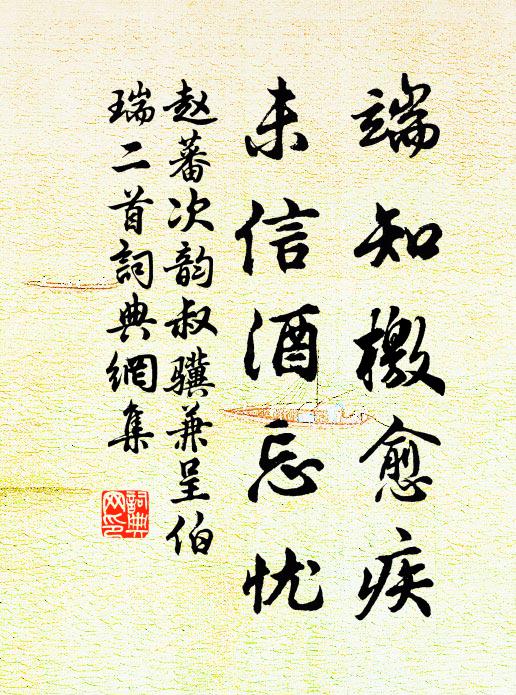 端知檄愈疾
未信酒忘忧
赵蕃次韵叔骥兼呈伯
瑞二首詞典網集
詞典
网印